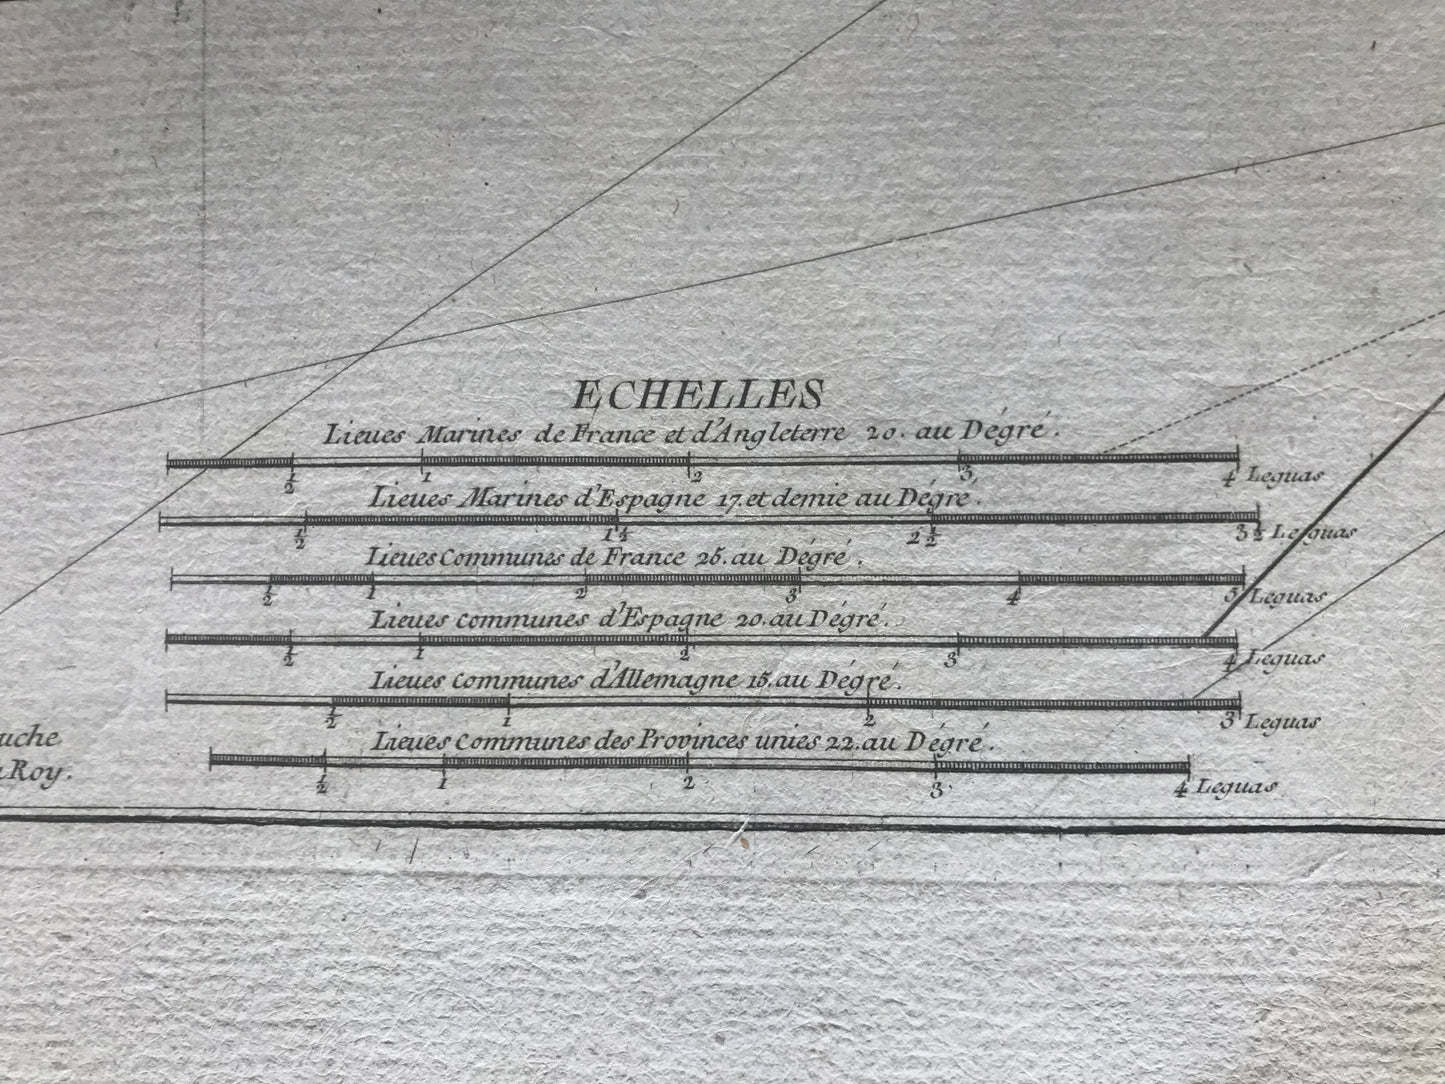 ECHELLES
Lieues Marines de France et d'Angleterre 20. au Dégré.
1/2 1 2 3 4 Leguas
Lieues Marines d'Espagne 17. et demie au Dégré.
1/2 1 1/2 2 1/2 3 1/2 Leguas
Lieues Communes de France 25. au Dégré.
1/2 1 2 3 4 5 Leguas
Lieues communes d'Espagne 20. au Dégré.
1/2 1 2 3 4 Leguas
Lieues communes d'Allemagne 15. au Dégré.
1/2 1 2 3 Leguas
Lieues Communes des Provinces unies 22. au Dégré.
1/2 1 2 3 4 Leguas
uche
Roy.